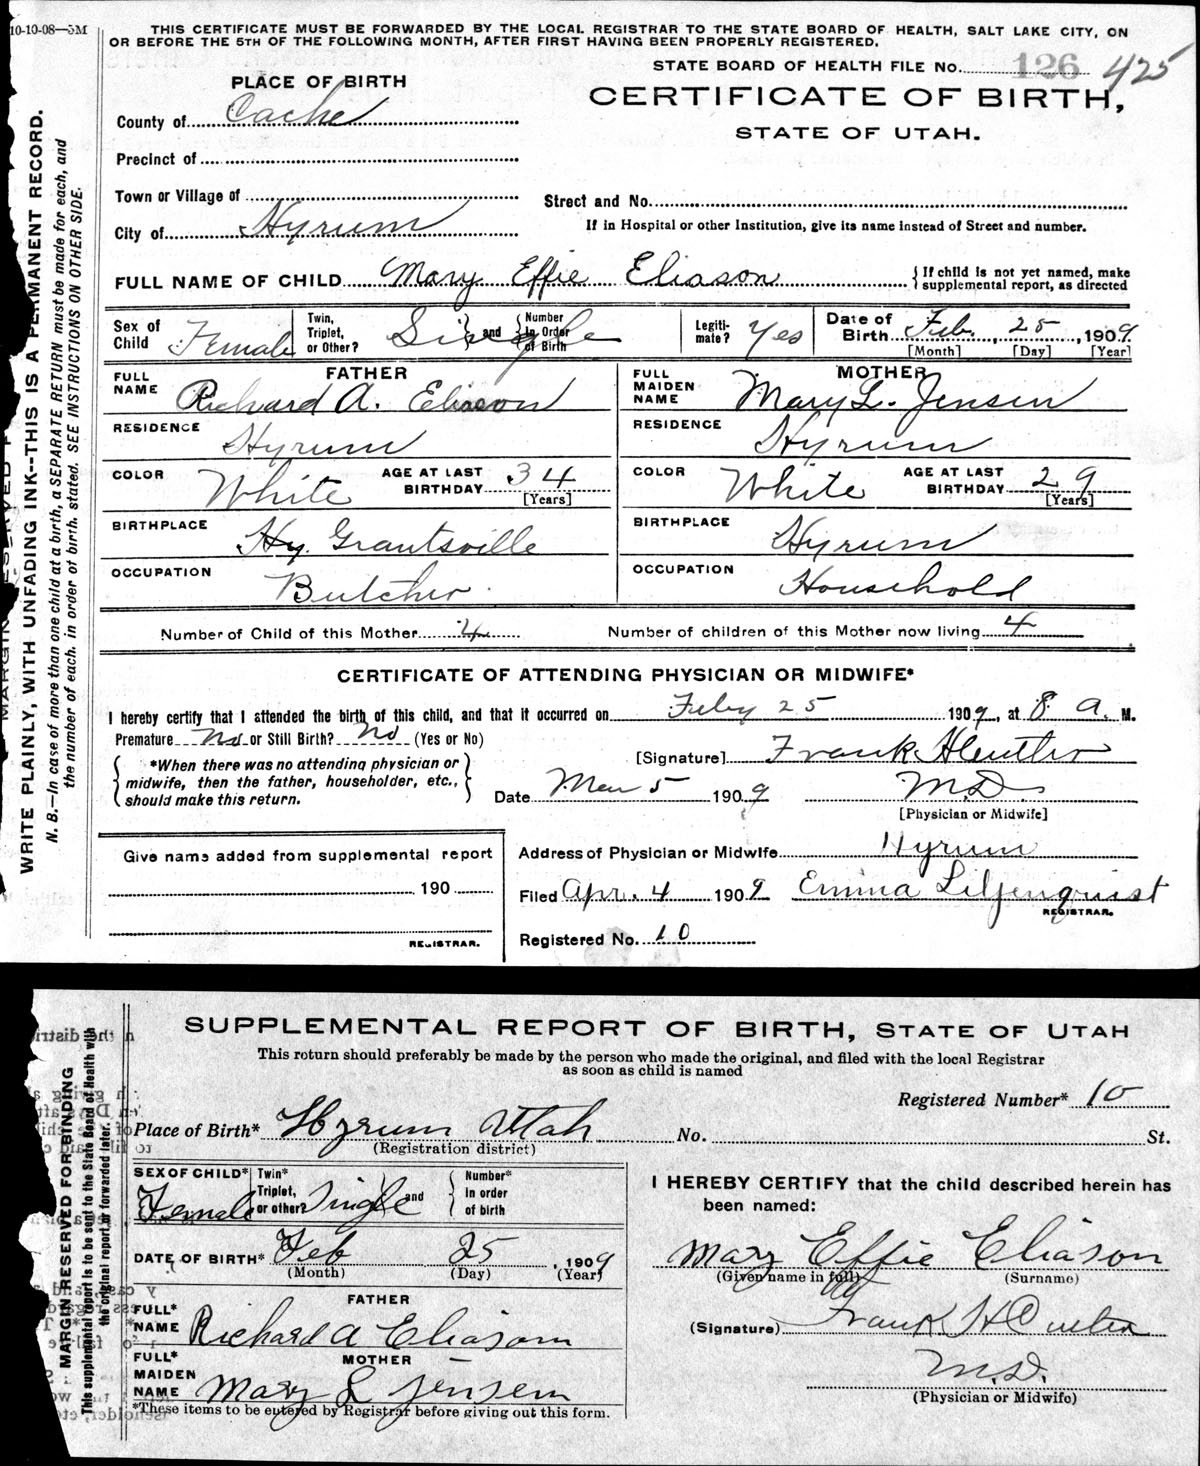 10-10-08—5M
THIS CERTIFICATE MUST BE FORWARDED BY THE LOCAL REGISTRAR TO THE STATE BOARD OF HEALTH, SALT LAKE CITY, ON
OR BEFORE THE 5TH OF THE FOLLOWING MONTH, AFTER FIRST HAVING BEEN PROPERLY REGISTERED.
STATE BOARD OF HEALTH FILE No. 126 425
PLACE OF BIRTH
CERTIFICATE OF BIRTH,
STATE OF UTAH.
County of Cache
Precinct of
Town or Village of
Street and No.
City of Hyrum
If in Hospital or other Institution, give its name instead of Street and number.
FULL NAME OF CHILD Mary Effie Eliason
{If child is not yet named, make
supplemental report, as directed
Sex of Child Female
Twin, Triplet, or Other? Single and Number In Order of Birth
Legiti-mate? Yes
Date of Birth Feb. 25, 1909
[Month] [Day] [Year]
FATHER
FULL NAME Richard A. Eliason
RESIDENCE Hyrum
COLOR White AGE AT LAST BIRTHDAY 34 [Years]
BIRTHPLACE Hy. Grantsville
OCCUPATION Butcher
MOTHER
FULL MAIDEN NAME Mary L. Jensen
RESIDENCE Hyrum
COLOR White AGE AT LAST BIRTHDAY 29 [Years]
BIRTHPLACE Hyrum
OCCUPATION Household
Number of Child of this Mother 4 Number of children of this Mother now living 4
CERTIFICATE OF ATTENDING PHYSICIAN OR MIDWIFE*
I hereby certify that I attended the birth of this child, and that it occurred on Feby 25 1909, at 8 a. M.
Premature No or Still Birth? No (Yes or No)
*When there was no attending physician or
midwife, then the father, householder, etc.,
should make this return.
[Signature] Frank H
Date Mar 5 1909 M.D.
[Physician or Midwife]
Give name added from supplemental report
190
REGISTRAR.
Address of Physician or Midwife Hyrum
Filed Apr. 4 1909 Emma Liljenquist
REGISTRAR.
Registered No. 10
WRITE PLAINLY, WITH UNFADING INK--THIS IS A PERMANENT RECORD.
N. B.—In case of more than one child at a birth, a SEPARATE RETURN must be made for each, and
the number of each, in order of birth, stated. SEE INSTRUCTIONS ON OTHER SIDE.
SUPPLEMENTAL REPORT OF BIRTH, STATE OF UTAH
This return should preferably be made by the person who made the original, and filed with the local Registrar
as soon as child is named
Registered Number* 10
Place of Birth* Hyrum Utah No. St.
(Registration district)
SEX OF CHILD* Female
Twin* Triplet, or other? Single and Number* In order of birth
DATE OF BIRTH* Feb 25, 1909
(Month) (Day) (Year)
FATHER
FULL* NAME Richard A Eliason
MOTHER
FULL* MAIDEN NAME Mary L Jensen
*These items to be entered by Registrar before giving out this form.
I HEREBY CERTIFY that the child described herein has
been named:
Mary Effie Eliason
(Given name in full) (Surname)
(Signature) Frank H
M.D.
(Physician or Midwife)
MARGIN RESERVED FOR BINDING
This supplemental report is to be sent to the State Board of Health with
the original report, or forwarded later.